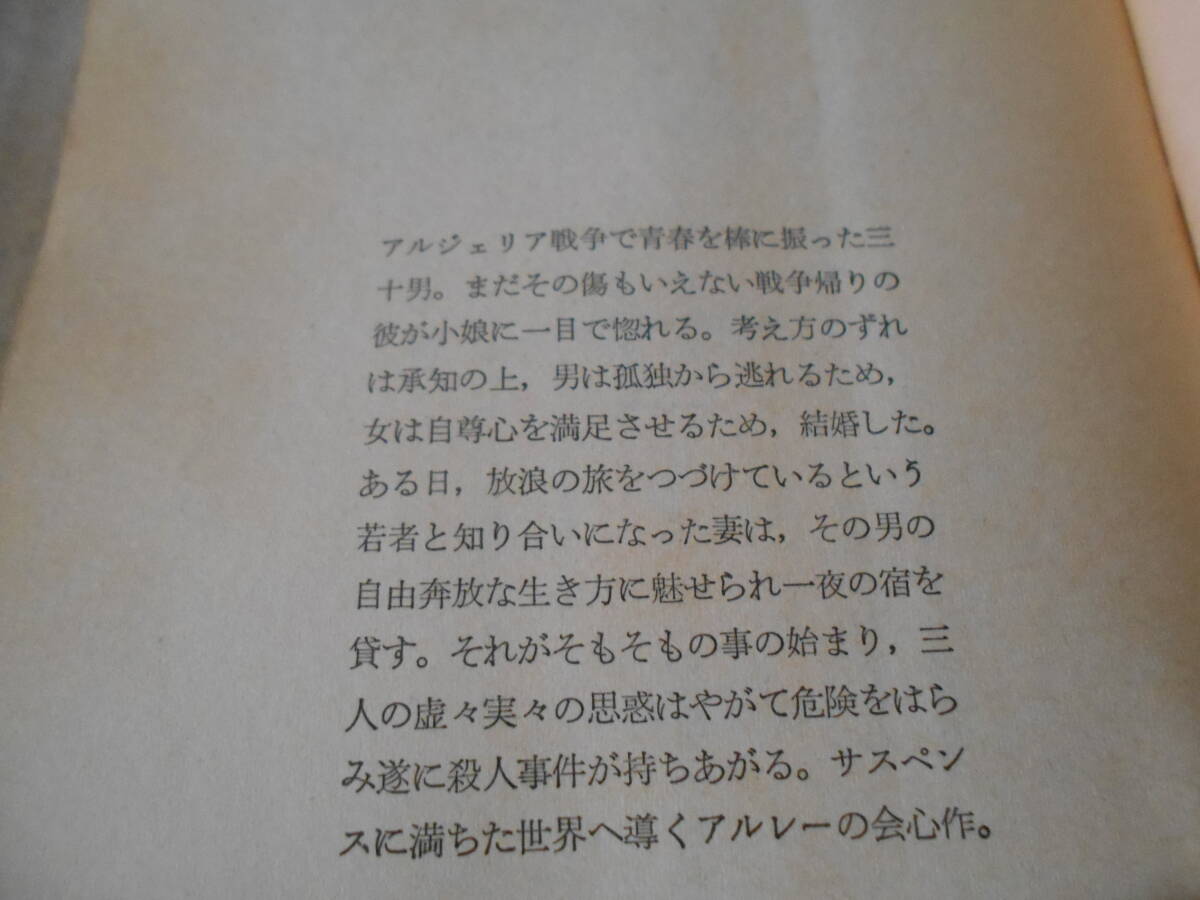 アルジェリア戦争で青春を棒に振った三
十男。まだその傷もいえない戦争帰りの
彼が小娘に一目で惚れる。考え方のずれ
は承知の上，男は孤独から逃れるため，
女は自尊心を満足させるため，結婚した。
ある日，放浪の旅をつづけているという
若者と知り合いになった妻は，その男の
自由奔放な生き方に魅せられ一夜の宿を
貸す。それがそもそもの事の始まり，三
人の虚々実々の思惑はやがて危険をはら
み遂に殺人事件が持ちあがる。サスペン
スに満ちた世界へ導くアルレーの会心作。